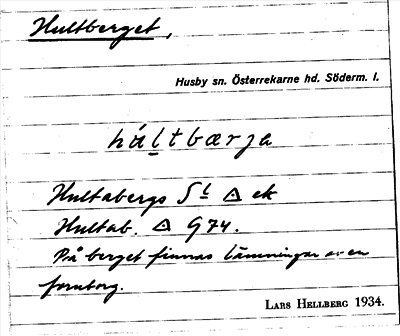 Hultberget,
Husby sn. Österrekarne hd. Söderm. l.
hu̇ḷtbærja
Hultabergs Sl ◬ ek
Hultab. ◬ G74.
På berget finnas lämningar av en
fornborg.
LARS HELLBERG 1934.